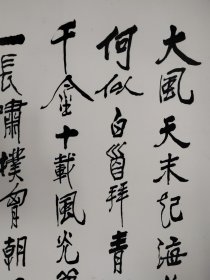 大风天末起海
何似白首拜青
千金十載風光
一長嘯撲窗朝